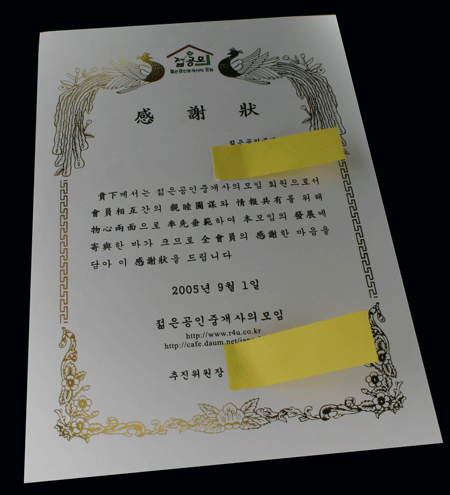 젊공모
젊은공인중개사의 모임
感謝狀
젊은공인중개
貴下께서는 젊은공인중개사의모임 회원으로서
會員相互간의 親睦圖謀와 情報共有를 위해
物心兩面으로 率先垂範하여 本모임의 發展에
寄與한 바가 크므로 全會員의 感謝한 마음을
담아 이 感謝狀을 드립니다
2005년 9월 1일
젊은공인중개사의모임
http://www.r4u.co.kr
http://cafe.daum.net/
추진위원장